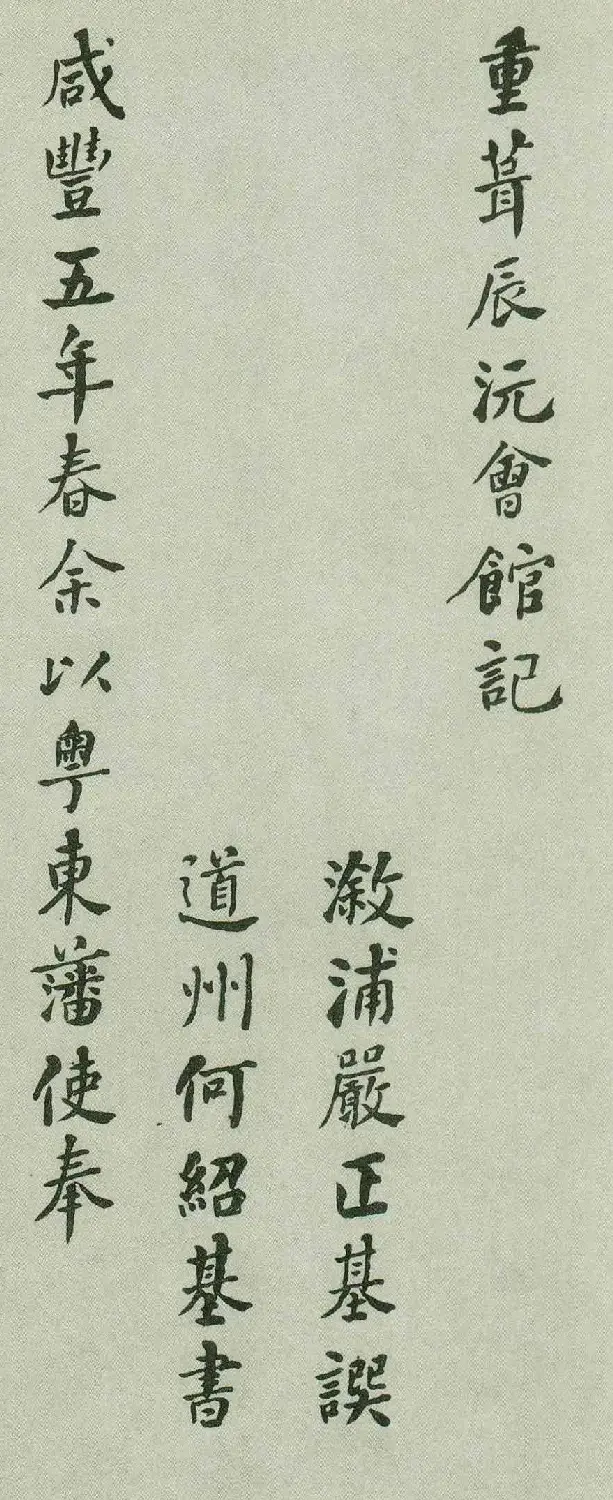 重葺辰沅會館記
漵浦嚴正基譔
道州何紹基書
咸豐五年春余以粵東藩使奉